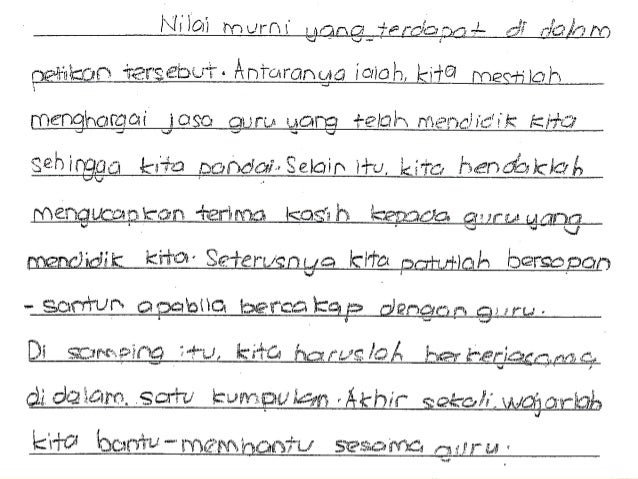 Nilai murni yang terdapat di dalam
petikan tersebut. Antaranya ialah, kita mestilah
menghargai jasa guru yang telah mendidik kita
sehingga kita pandai. Selain itu, kita hendaklah
mengucapkan terima kasih kepada guru yang
mendidik kita. Seterusnya kita patutlah bersopan
-santun apabila bercakap dengan guru.
Di samping itu, kita haruslah berkerjasama
di dalam satu kumpulan. Akhir sekali, wajarlah
kita bantu-membantu sesama guru.